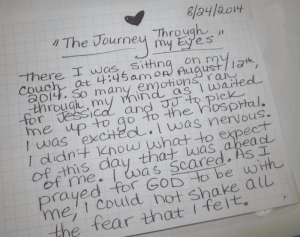 8/24/2014
"The Journey Through
my Eyes"
There I was sitting on my
couch at 4:45am on August 12th,
2014. So many emotions ran
through my mind as I waited
for Jessica and JJ to pick
me up to go to the hospital.
I was excited. I was nervous.
I didn't know what to expect
of this day that was ahead
of me. I was scared. As I
prayed for GOD to be with
me, I could not shake all
the fear that I felt.